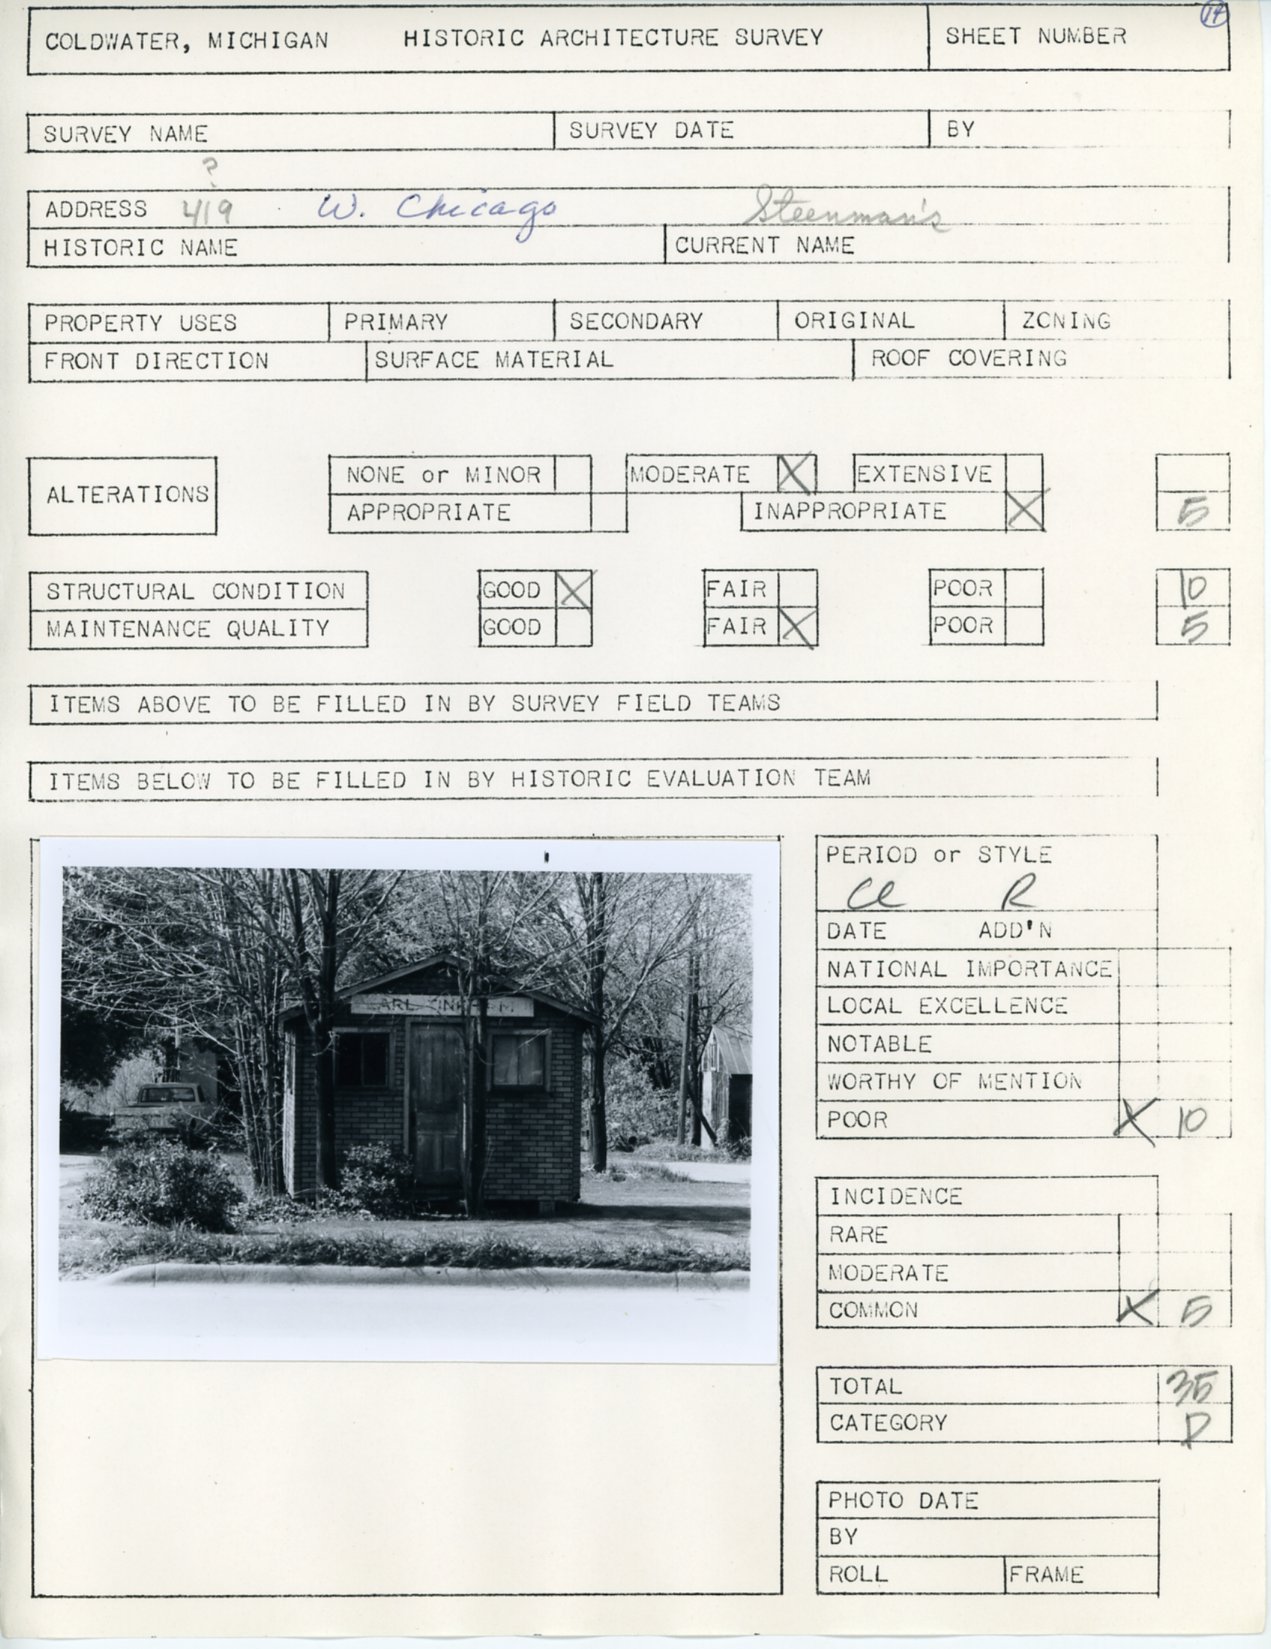 14
COLDWATER, MICHIGAN HISTORIC ARCHITECTURE SURVEY SHEET NUMBER
SURVEY NAME SURVEY DATE BY
?
ADDRESS 419 W. Chicago Steenman's
HISTORIC NAME CURRENT NAME
PROPERTY USES PRIMARY SECONDARY ORIGINAL ZONING
FRONT DIRECTION SURFACE MATERIAL ROOF COVERING
NONE or MINOR MODERATE X EXTENSIVE
ALTERATIONS
APPROPRIATE INAPPROPRIATE X 5
STRUCTURAL CONDITION GOOD X FAIR POOR 10
MAINTENANCE QUALITY GOOD FAIR X POOR 5
ITEMS ABOVE TO BE FILLED IN BY SURVEY FIELD TEAMS
ITEMS BELOW TO BE FILLED IN BY HISTORIC EVALUATION TEAM
PERIOD or STYLE
Cl R
DATE ADD'N
NATIONAL IMPORTANCE
LOCAL EXCELLENCE
NOTABLE
WORTHY OF MENTION
POOR X 10
INCIDENCE
RARE
MODERATE
COMMON X 5
TOTAL 35
CATEGORY D
PHOTO DATE
BY
ROLL FRAME